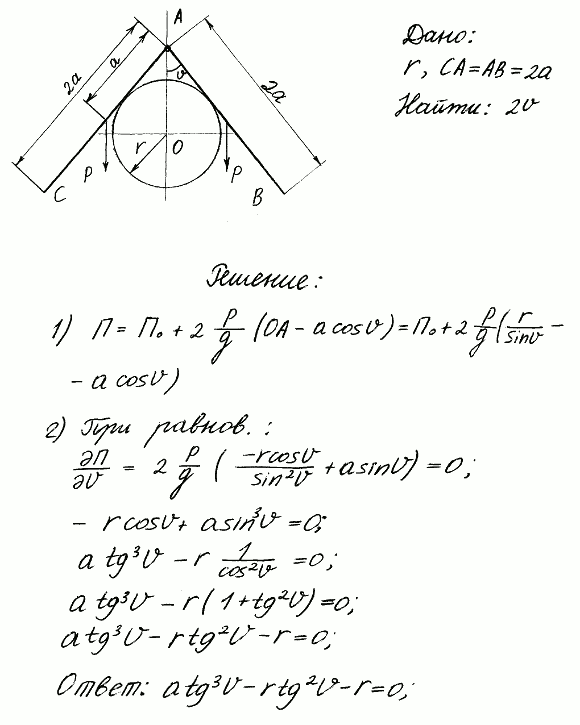 A
2a
a
v
2a
r
O
P
P
C
B
Дано:
r, CA=AB=2a
Найти: 2v
Решение:
1) П = П₀ + 2 P/g (OA - a cosv) = П₀ + 2 P/g (r/sinv -
- a cosv)
2) При равнов. :
∂П/∂v = 2 P/g ( -r cosv/sin²v + a sinv) = 0;
- r cosv + a sin³v = 0;
a tg³v - r 1/cos²v = 0;
a tg³v - r (1 + tg²v) = 0;
a tg³v - r tg²v - r = 0;
Ответ: a tg³v - r tg²v - r = 0;